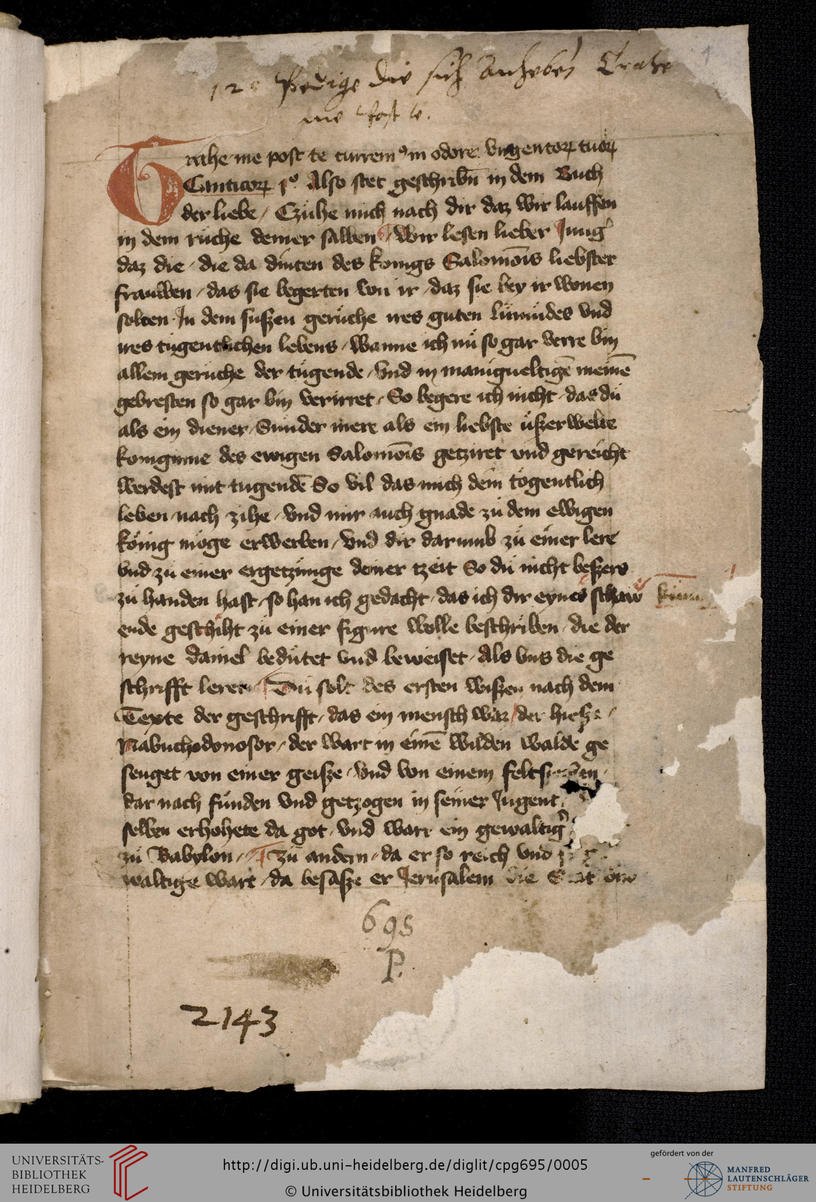 die sich anhebet Trahe
me post te.
Trahe me post te curremꝰ in odore vngentoꝝ tuoꝝ
Canticoꝝ pͦ Also stet geschribn̄ in dem Buch
der liebe / Czuhe mich nach dir daz wir lauffen
in dem ruche deiner salben / wir lesen lieber Jung
daz die / die da dinten des konigs Salomōis liebster
frauwen / das sie begerten von ir / daz sie bey ir wonen
solten Jn dem suszen geruche ires guten lumudes vnd
ires tugentlichen lebens / wanne ich nu so gar verre bin
allem geruche der tugende / vnd in manigueltigē meinē
gebresten so gar bin verirret / So begere ich nicht / das du
als ein diener / Sunder mere als ein liebste uszerwelte
koniginne des ewigen Salomōis getziret vnd gereicht
werdest mit tugendē So vil das mich dein togentlich
leben nach zihe / vnd mir auch gnade zu dem ewigen
konig moge erwerben / vnd dir darumb zu einer lere
vnd zu einer ergetzunge deiner tzeit So du nicht beszers
zu handen hast / so han ich gedacht / das ich dir eynes schaw
ende geschiht zu einer figure wolle beschriben / die der
reyne daniel bedutet vnd beweiset / Als vns die ge
schrifft leret Du solt des ersten wiszen nach dem
Texte der geschrifft / das ein mensch waz / der hiesz
Nabuchodonosor / der wart in einē wilden walde ge
seuget von einer geisze / vnd von einem
dar nach funden vnd getzogen in seiner Jugent
selben erhohete da got / vnd wart ein gewaltig
zu Babylon / Zu andern / da er so reich vnd
waltige wart / da besasze er Jerusalem die Stat vnd
695
P.
2143
UNIVERSITÄTS-
BIBLIOTHEK
HEIDELBERG
http://digi.ub.uni-heidelberg.de/diglit/cpg695/0005
© Universitätsbibliothek Heidelberg
gefördert von der
MANFRED
LAUTENSCHLÄGER
STIFTUNG